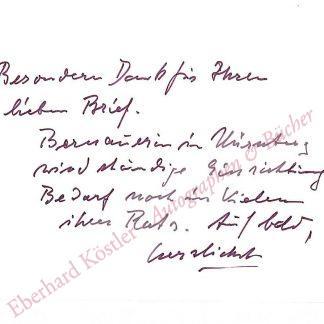 Besondern Dank für Ihren
lieben Brief.
Bernauerin in Nürnberg
wird ständige Einrichtung
Bedarf noch in Vielem
ihres Rats. Auf bald,
herzlichst
Eberhard Köstler Autographen & Bücher